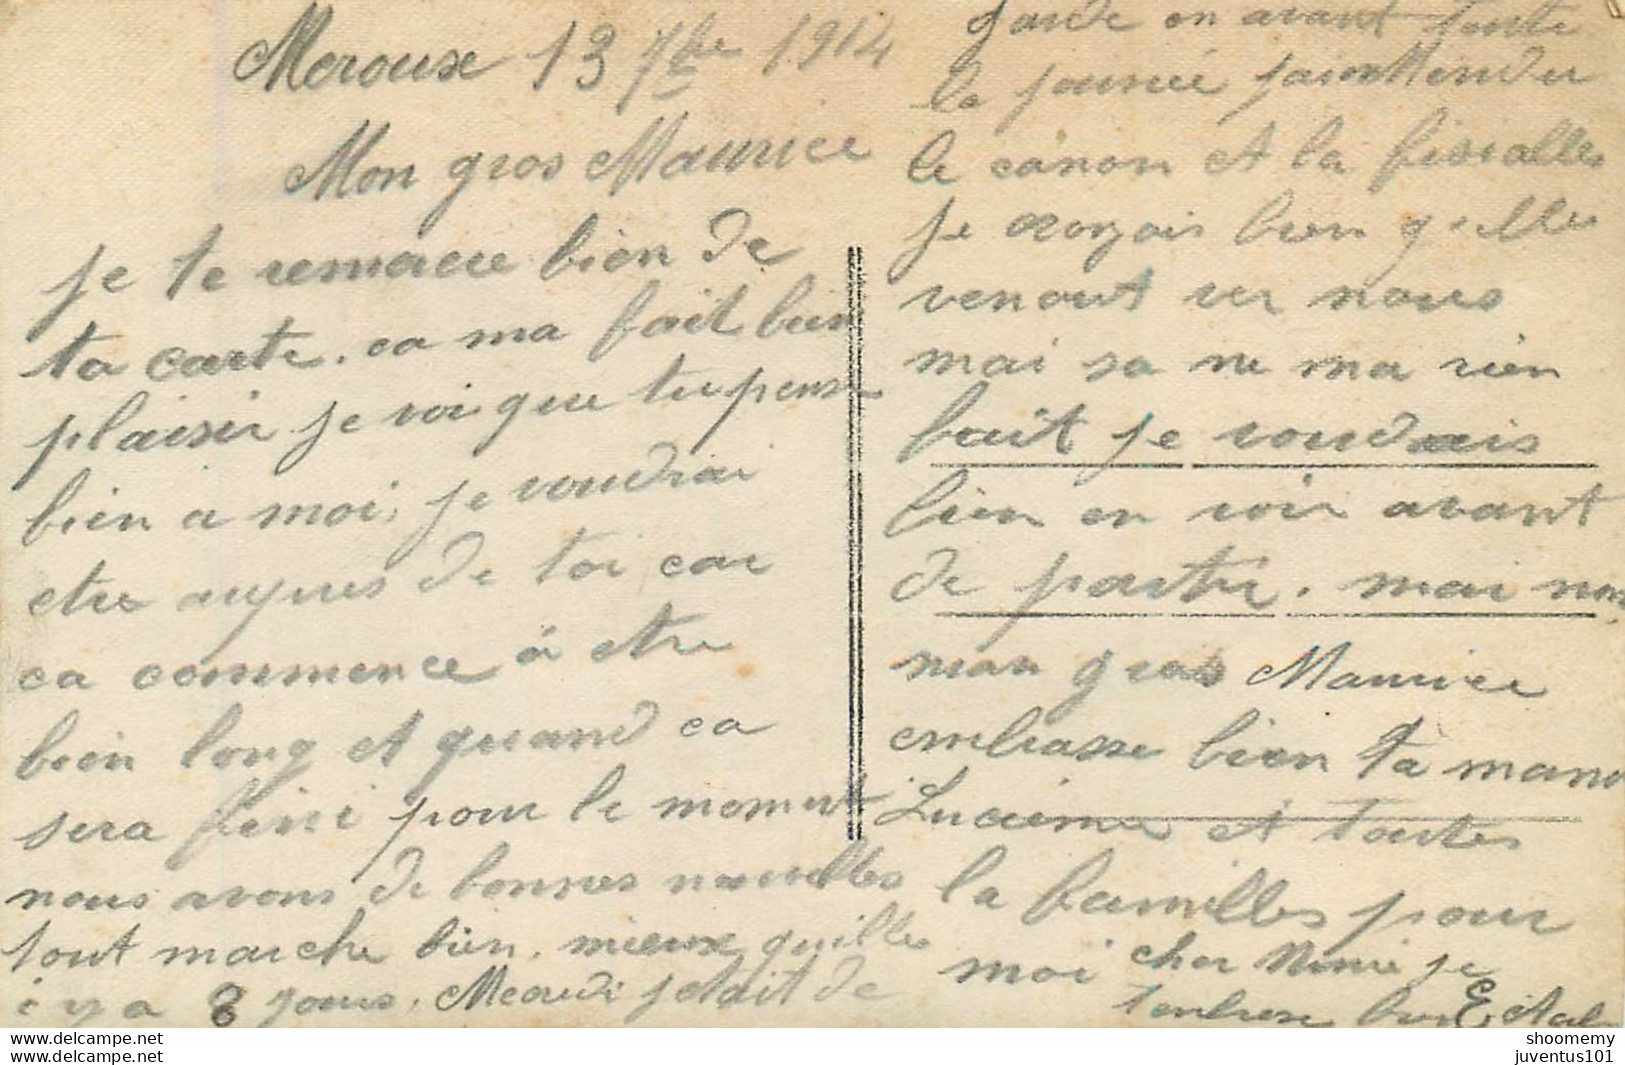 Meroux 13 7bre 1914
Mon gros Maurice
je te remercie bien de
ta carte. ca ma fait bien
plaisir je voi que tu pense
bien a moi, je voudrai
etre aupres de toi car
ca commence à etre
bien long et quand ca
sera fini pour le moment
nous avons de bonnes nouvelles
tout marche bien. mieux quilles
i y a 8 jours. Mardi jetait de
garde en avant toute
la journée jai
le canon et la fusialles
je croyais bien quelle
venait sur nous
mai sa ne ma rien
fait je voudrais
bien en voir avant
de partir. mai non
mon gros Maurice
embrasse bien ta maman
Lucienne et toutes
la familles pour
moi cher Mimi je
tembrase bien
shoomemy
juventus101
https://www.delcampe.net